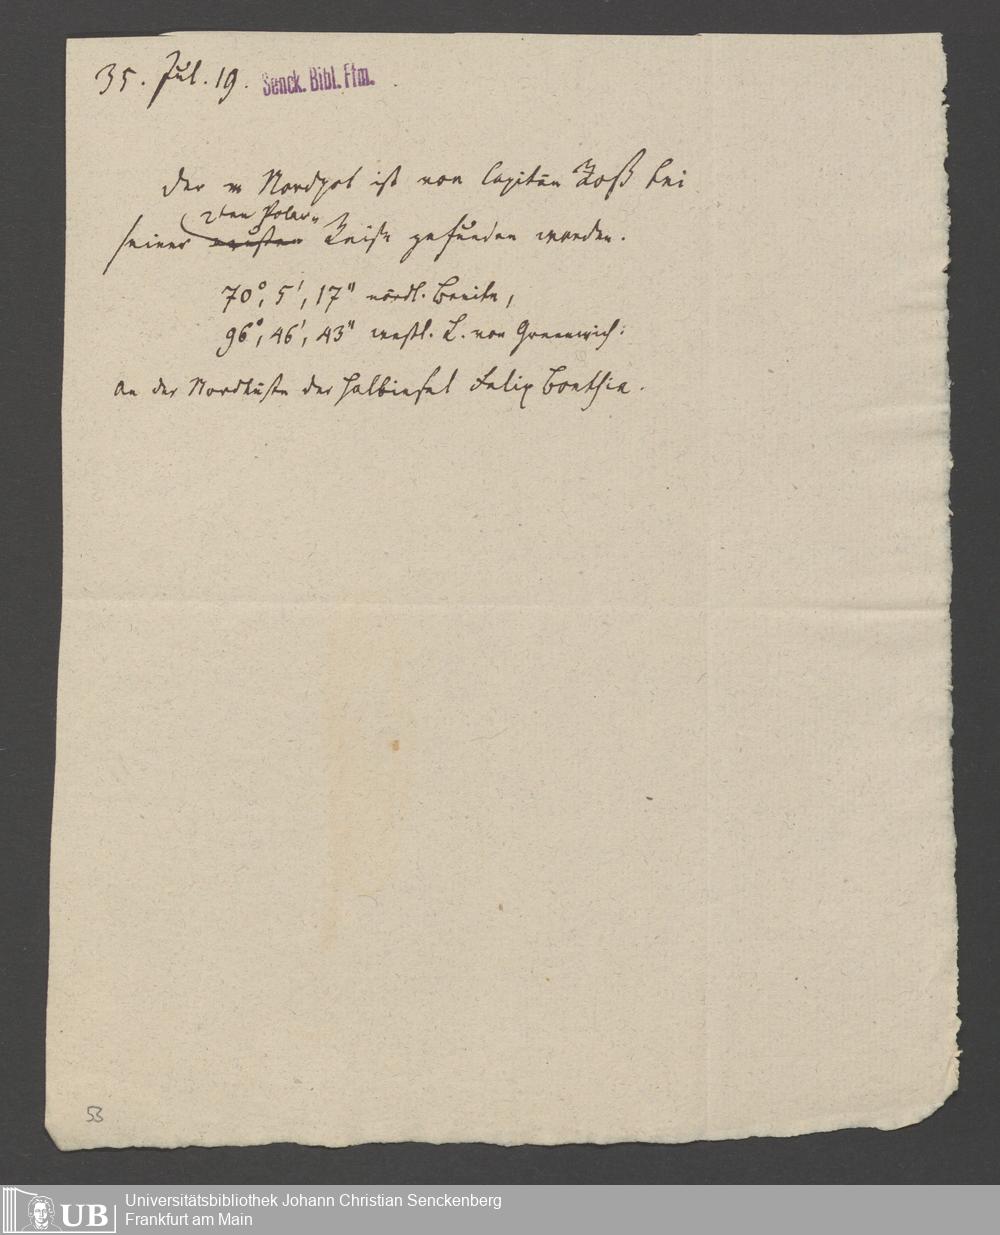 35. Jul. 19. Senck. Bibl. Ffm.
Der m Nordpol ist von Capitän Roß bei
2ten Polar-
seiner neusten Reise gefunden worden.
70°, 5', 17" nördl. Breite,
96°, 46', 43" westl. L. von Greenwich:
an der Nordküste der Halbinsel Felix Boothia.
53
UB Universitätsbibliothek Johann Christian Senckenberg
Frankfurt am Main